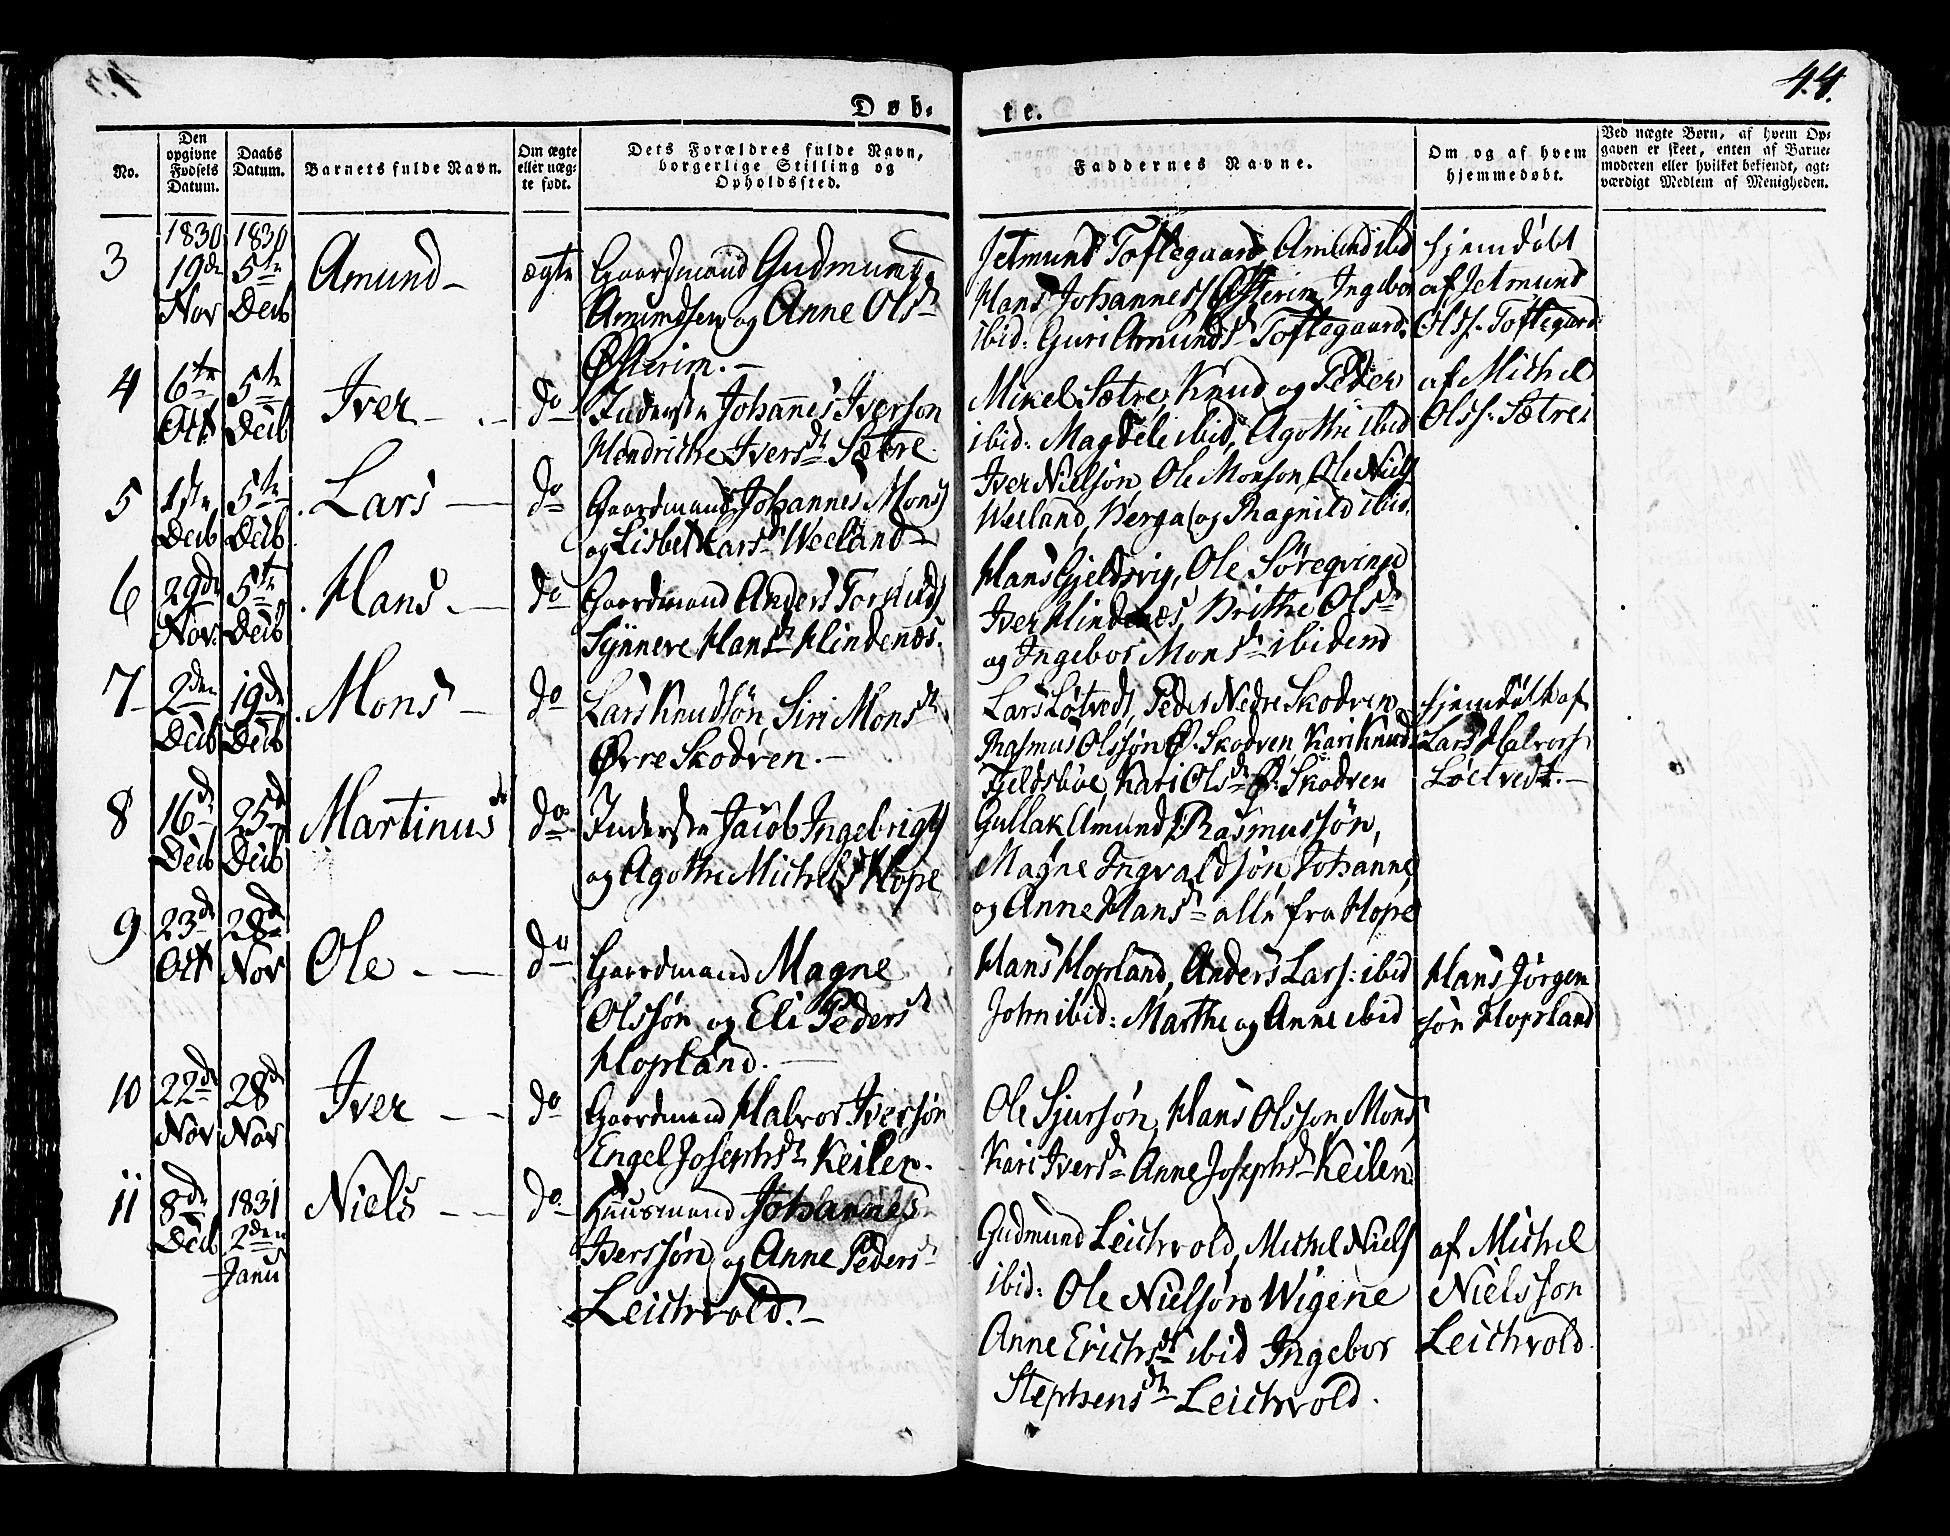 44.
Døb-
te.
No.
Den opgivne Fødsels Datum.
Daabs Datum.
Barnets fulde Navn.
Om ægte eller uægte født.
Dets Forældres fulde Navn, borgerlige Stilling og Opholdssted.
Faddernes Navne.
Om og af hvem hjemmedøbt.
Ved uægte Børn, af hvem Opgaven er skeet, enten af Barnemoderen eller hvilket bekjendt, agtværdigt Medlem af Menigheden.
3
1830 19de Nov
1830 5te Decb
Amund
ægte
Gaardmand Gudmund
Amundsen og Anne Olsdr
Østerim.
Jetmund Toftegaard, Amund ibid
Hans Johanness Østerim, Ingebor
ibid: Guri Amundsdr Toftegaard.
Hjemdøbt
af Jetmund
Olss. Toftegaard
4
6te Oct
5te Decb
Iver
do
Inderste Johannes Iverson
Hendriche Iversdr Sætre
Mikel Sætre, Knud og Peder
ibid: Magdele ibid, Agothe ibid
af Michel
Olss. Sætrei
5
1ste Decb
5te Decb
Lars
do
Gaardmand Johannes Mons
og Lisbet Larsdr Weeland
Iver Nielsøn, Ole Monson, Ole Niels
Weeland, Berga og Ragnild ibid.
6
29de Nov
5te Decb
Hans
do
Gaardmand Anders Torkilds
Synneve Hansdr Hindenæs.
Hans Gjeldsvig, Ole Søreqvinge
Iver Hindenæs, Brithe Olsdr
og Ingebor Monsdr ibidem
7
2den Decb
19de Decb
Mons
do
Lars Knudsøn, Siri Monsdr
Øvre Skodven.
Lars Løtvedt, Peder Nedre Skodven
Rasmus Olssøn Ø. Skodven, Kari Knuds
Fjeldsbøe, Kari Olsdr Ø. Skodven
Hjemdøbt af
Lars Halvors
Løetvedt.
8
16de Decb
25de Decb
Martinus
do
Inderste Jacob Ingebrigts
og Agothe Michelsdr Hope
Gullak Amunds, Rasmussøn,
Magne Ingvaldsøn, Johanne
og Anne Hansdr alle fra Hope
9
23de Oct
28de Nov
Ole
do
Gaardmand Magne
Olssøn og Eli Pedersdr
Hopland.
Hans Hopland, Anders Lars: ibid
John ibid: Marthe og Anne ibid
Hans Jørgen
søn Hopland
10
22de Nov
28de Nov
Iver
do
Gaardmand Halvor Iversøn
Engel Josephsdr Keilen.
Ole Sjursøn, Hans Olsson, Mons,
Kari Iversdr Anne Josephsdr Keilen.
11
8de Decb
1831 2den Janu
Niels
do
Huusmand Johannes
Iverssøn og Anne Pedersdr
Leichvold.
Gudmund Leichvold, Michel Niels
ibid: Ole Nielsøn Wigene
Anne Erichsdr ibid Ingebor
Stephensdr Leichvold.
af Michel
Nielsson
Leichvold.